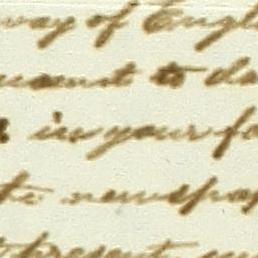 way of Engl
to da
in your fa
the newspap
present